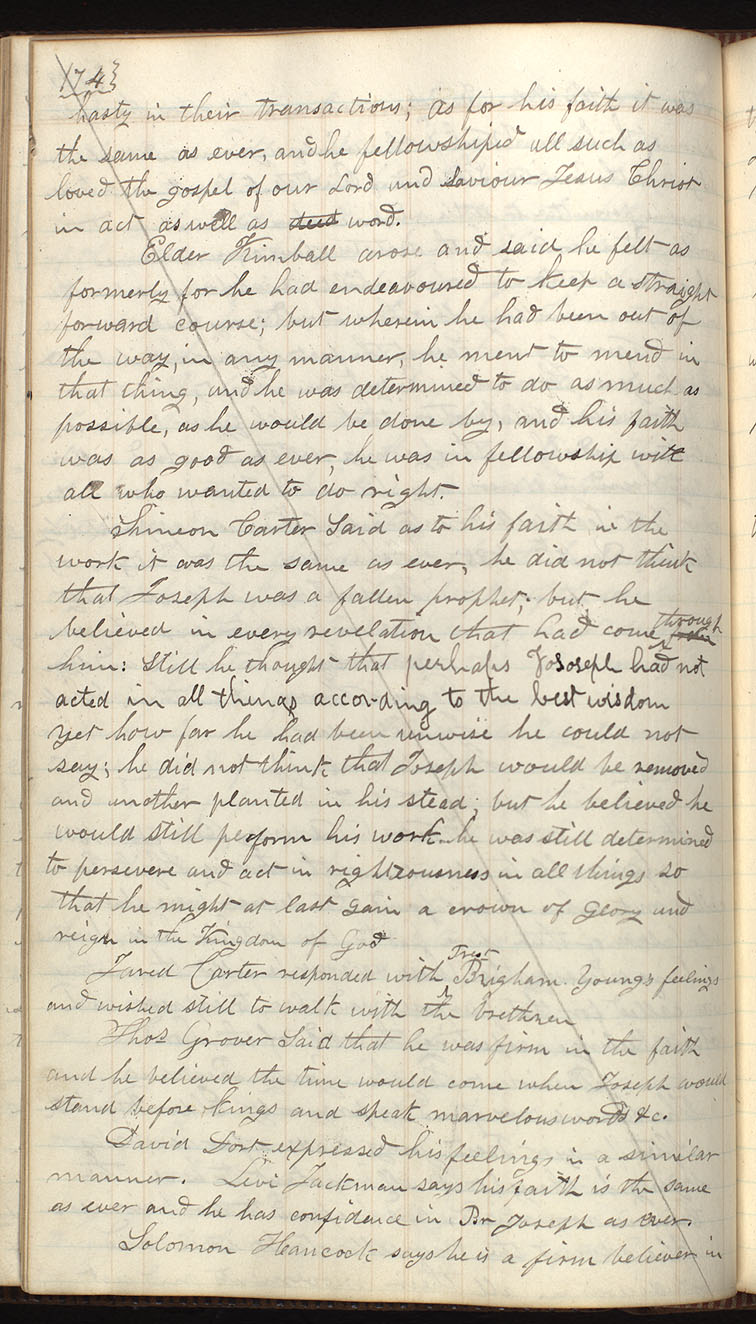 174}
hasty in their transactions; as for his faith it was
the same as ever, and he fellowshiped all such as
loved the gospel of our Lord and Saviour Jesus Christ
in act as well as deed word.
Elder Kimball arose and said he felt as
formerly for he had endeavoured to keep a straight
forward course; but wherein he had been out of
the way, in any manner, he ment to mend in
that thing, and he was determined to do as much as
possible, as he would be done by, and his faith
was as good as ever, he was in fellowship with
all who wanted to do right.
Shimeon Carter Said as to his faith in the
work it was the same as ever, he did not think
that Joseph was a fallen prophet; but he
believed in every revelation that had come through
him: Still he thought that perhaps Joseph had not
acted in all things according to the best wisdom
yet how far he had been unwise he could not
say; he did not think that Joseph would be removed
and another planted in his stead; but he believed he
would still perform his work. he was still determined
to persevere and act in righteousness in all things so
that he might at last gain a crown of glory and
reign in the Kingdom of God
Jared Carter responded with Prest Brigham Young's feelings
and wished still to walk with the brethren
Thos Grover Said that he was firm in the faith
and he believed the time would come when Joseph would
stand before Kings and speak marvelous words &c.
David Dort expressed his feelings in a similar
manner. Levi Jackman says his faith is the same
as ever and he has confidence in Br Joseph as ever.
Solomon Hancock says he is a firm believer in